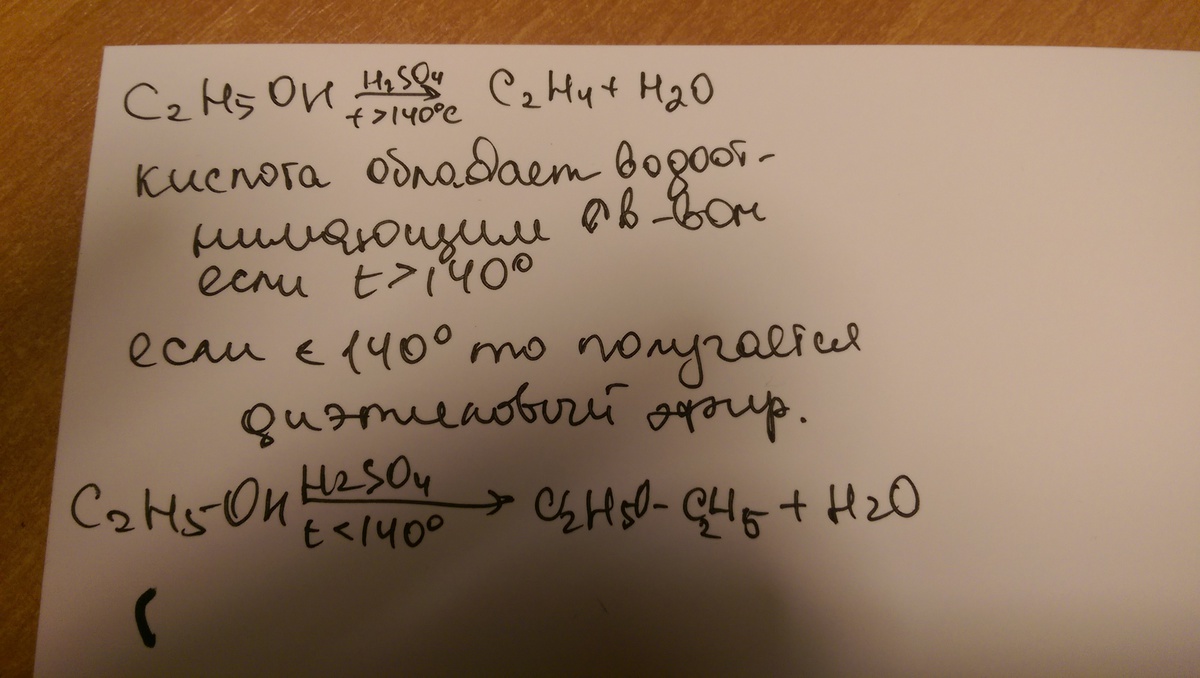 C₂H₅OH H₂SO₄ t>140°C → C₂H₄ + H₂O
кислота обладает водоот-
нимающим св-вом
если t>140°
если < 140° то получается
диэтиловый эфир.
C₂H₅-OH H₂SO₄ t<140° → C₂H₅O-C₂H₅ + H₂O
(